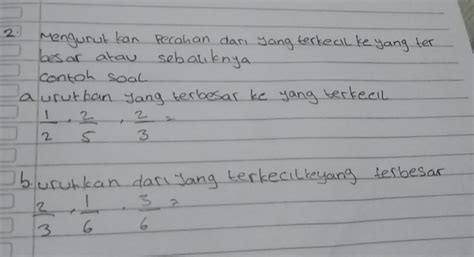 2. Mengurut kan Pecahan dari yang terkecil ke yang ter
besar atau sebaliknya
contoh soal
a urutkan yang terbesar ke yang terkecil
1/2 , 2/5 , 2/3 =
b urutkan dari yang terkecilkeyang terbesar
2/3 , 1/6 , 3/6 =